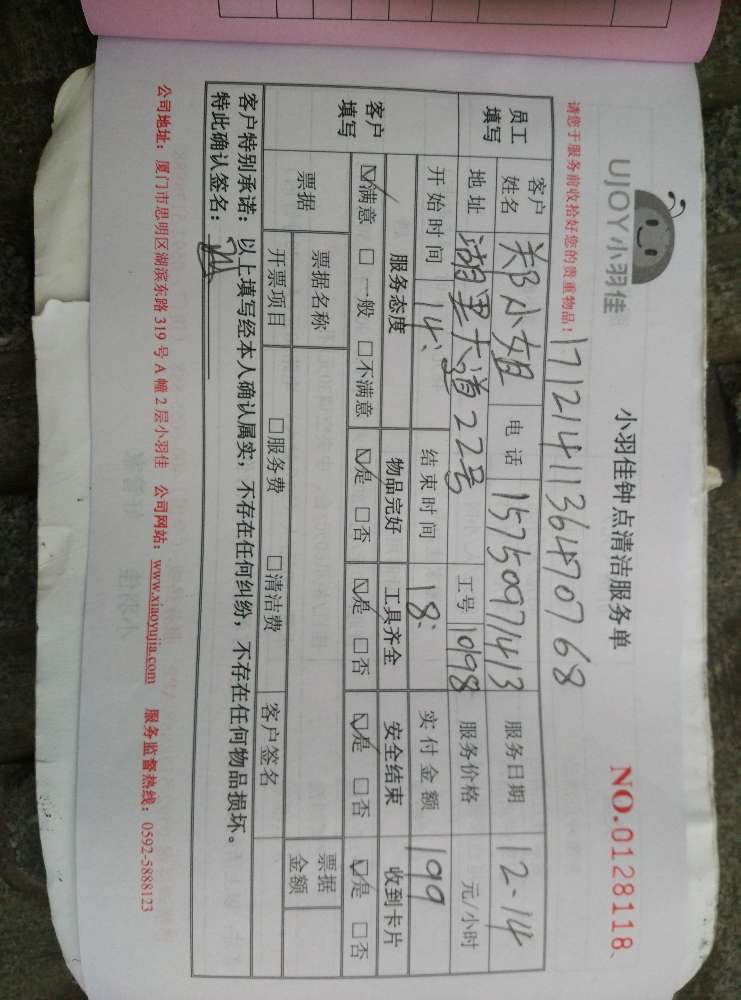 UJOY小羽佳
小羽佳钟点清洁服务单
NO.0128118
请您于服务前收拾好您的贵重物品！
1712141136470768
员工填写
客户姓名 郑小姐 电话 15750971413 服务日期 12-14
地址 湖里大道22号 工号 1098 服务价格 元/小时
开始时间 14: 结束时间 18: 实付金额 199
客户填写
服务态度 物品完好 工具齐全 安全结束 收到卡片
☑满意 □一般 □不满意 ☑是 □否 ☑是 □否 ☑是 □否 ☑是 □否
票据 票据名称 票据金额
开票项目 □服务费 □清洁费 客户签名
客户特别承诺：以上填写经本人确认属实，不存在任何纠纷，不存在任何物品损坏。
特此确认签名：
公司地址：厦门市思明区湖滨东路 319 号 A 幢 2 层小羽佳 公司网站：www.xiaoyujia.com 服务监督热线：0592-5888123